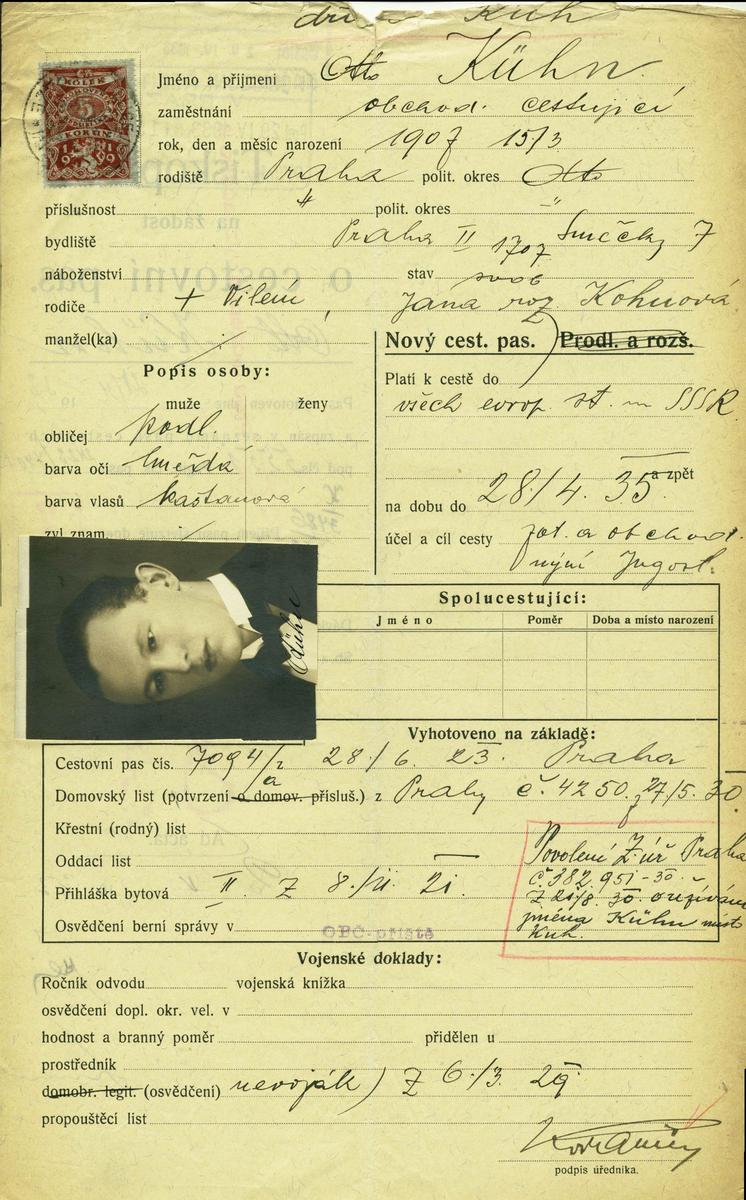 Kuh
Jméno a příjmení Otto Kühn
zaměstnání obchod. cestující
rok, den a měsíc narození 1907 15/3
rodiště Praha polit. okres
příslušnost " polit. okres "
bydliště Praha II 1707 Smečky 7
náboženství stav svob
rodiče + Vilém, Jana roz. Kohnová
manžel(ka)
Nový cest. pas. Prodl. a rozš.
Popis osoby:
muže ženy
Platí k cestě do
všech evrop. st. SSSR
obličej podl.
barva očí hnědá
barva vlasů kaštanová
a zpět
na dobu do 28/4. 35
zvl. znam.
účel a cíl cesty a obchod.
nyní Jugosl.
Kühn
Spolucestující:
Jméno Poměr Doba a místo narození
Vyhotoveno na základě:
Cestovní pas čís. 7094/ 28/6. 23. Praha
Domovský list (potvrzení o domov. přísluš.) z Prahy č. 4250. z 27/5. 30
Křestní (rodný) list
Oddací list
Přihláška bytová II. z 8./ 21.
Osvědčení berní správy v OBČ-příště
Povolení Z. úř Praha
č. 382.951-30.
z 21/8. 30. o užívání
jména Kühn místo
Kuh.
Vojenské doklady:
Ročník odvodu vojenská knížka
osvědčení dopl. okr. vel. v
hodnost a branný poměr přidělen u
prostředník
domobr. legit. (osvědčení) nevoják) z 6./3. 29.
propouštěcí list
podpis úředníka.